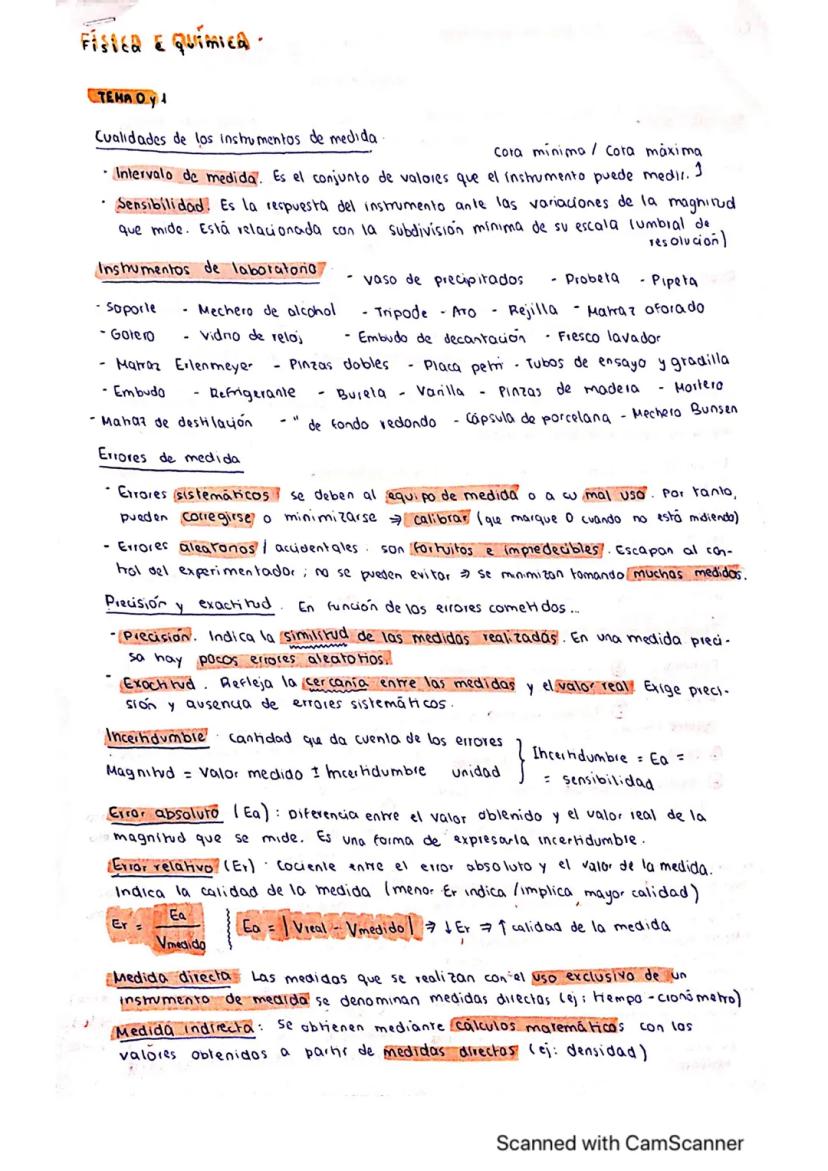 Física e química.
TEMA 0 y 1
Cualidades de los instrumentos de medida.
cota mínima / cota máxima
· Intervalo de medida. Es el conjunto de valores que el instrumento puede medir.
· Sensibilidad. Es la respuesta del instrumento ante las variaciones de la magnitud
que mide. Está relacionada con la subdivisión mínima de su escala (umbral de
resolución)
Instrumentos de laboratorio - vaso de precipitados - Probeta - Pipeta
- Soporte - Mechero de alcohol - Trípode - Aro - Rejilla - Matraz aforado
- Gotero - Vidrio de reloj - Embudo de decantación - Fresco lavador
- Matraz Erlenmeyer - Pinzas dobles - Placa petri - Tubos de ensayo y gradilla
- Embudo - Refrigerante - Bureta - Varilla - Pinzas de madera - Mortero
- Matraz de destilación - " de fondo redondo - Cápsula de porcelana - Mechero Bunsen
Errores de medida
· Errores sistemáticos se deben al equipo de medida o a su mal uso. Por tanto,
pueden corregirse o minimizarse ⇒ calibrar (que marque 0 cuando no está midiendo)
- Errores aleatorios / accidentales. son fortuitos e impredecibles. Escapan al con-
trol del experimentador; no se pueden evitar ⇒ se minimizan tomando muchas medidas.
Precisión y exactitud. En función de los errores cometidos...
· Precisión. Indica la similitud de las medidas realizadas. En una medida preci-
sa hay pocos errores aleatorios.
· Exactitud. Refleja la cercanía entre las medidas y el valor real. Exige preci-
sión y ausencia de errores sistemáticos.
Incertidumbre cantidad que da cuenta de los errores
Magnitud = Valor medido ± Incertidumbre unidad
} Incertidumbre = Ea =
= sensibilidad.
Error absoluto (Ea): Diferencia entre el valor obtenido y el valor real de la
magnitud que se mide. Es una forma de expresar la incertidumbre.
Error relativo (Er). Cociente entre el error absoluto y el valor de la medida.
Indica la calidad de la medida (menor Er indica / implica mayor calidad)
Er = Ea / Vmedido { Ea = |Vreal - Vmedido| ⇒ ↓ Er ⇒ ↑ calidad de la medida
Medida directa Las medidas que se realizan con el uso exclusivo de un
instrumento de medida se denominan medidas directas (ej: tiempo - cronómetro)
Medida indirecta: Se obtienen mediante cálculos matemáticos con los
valores obtenidos a partir de medidas directas (ej: densidad)
Scanned with CamScanner